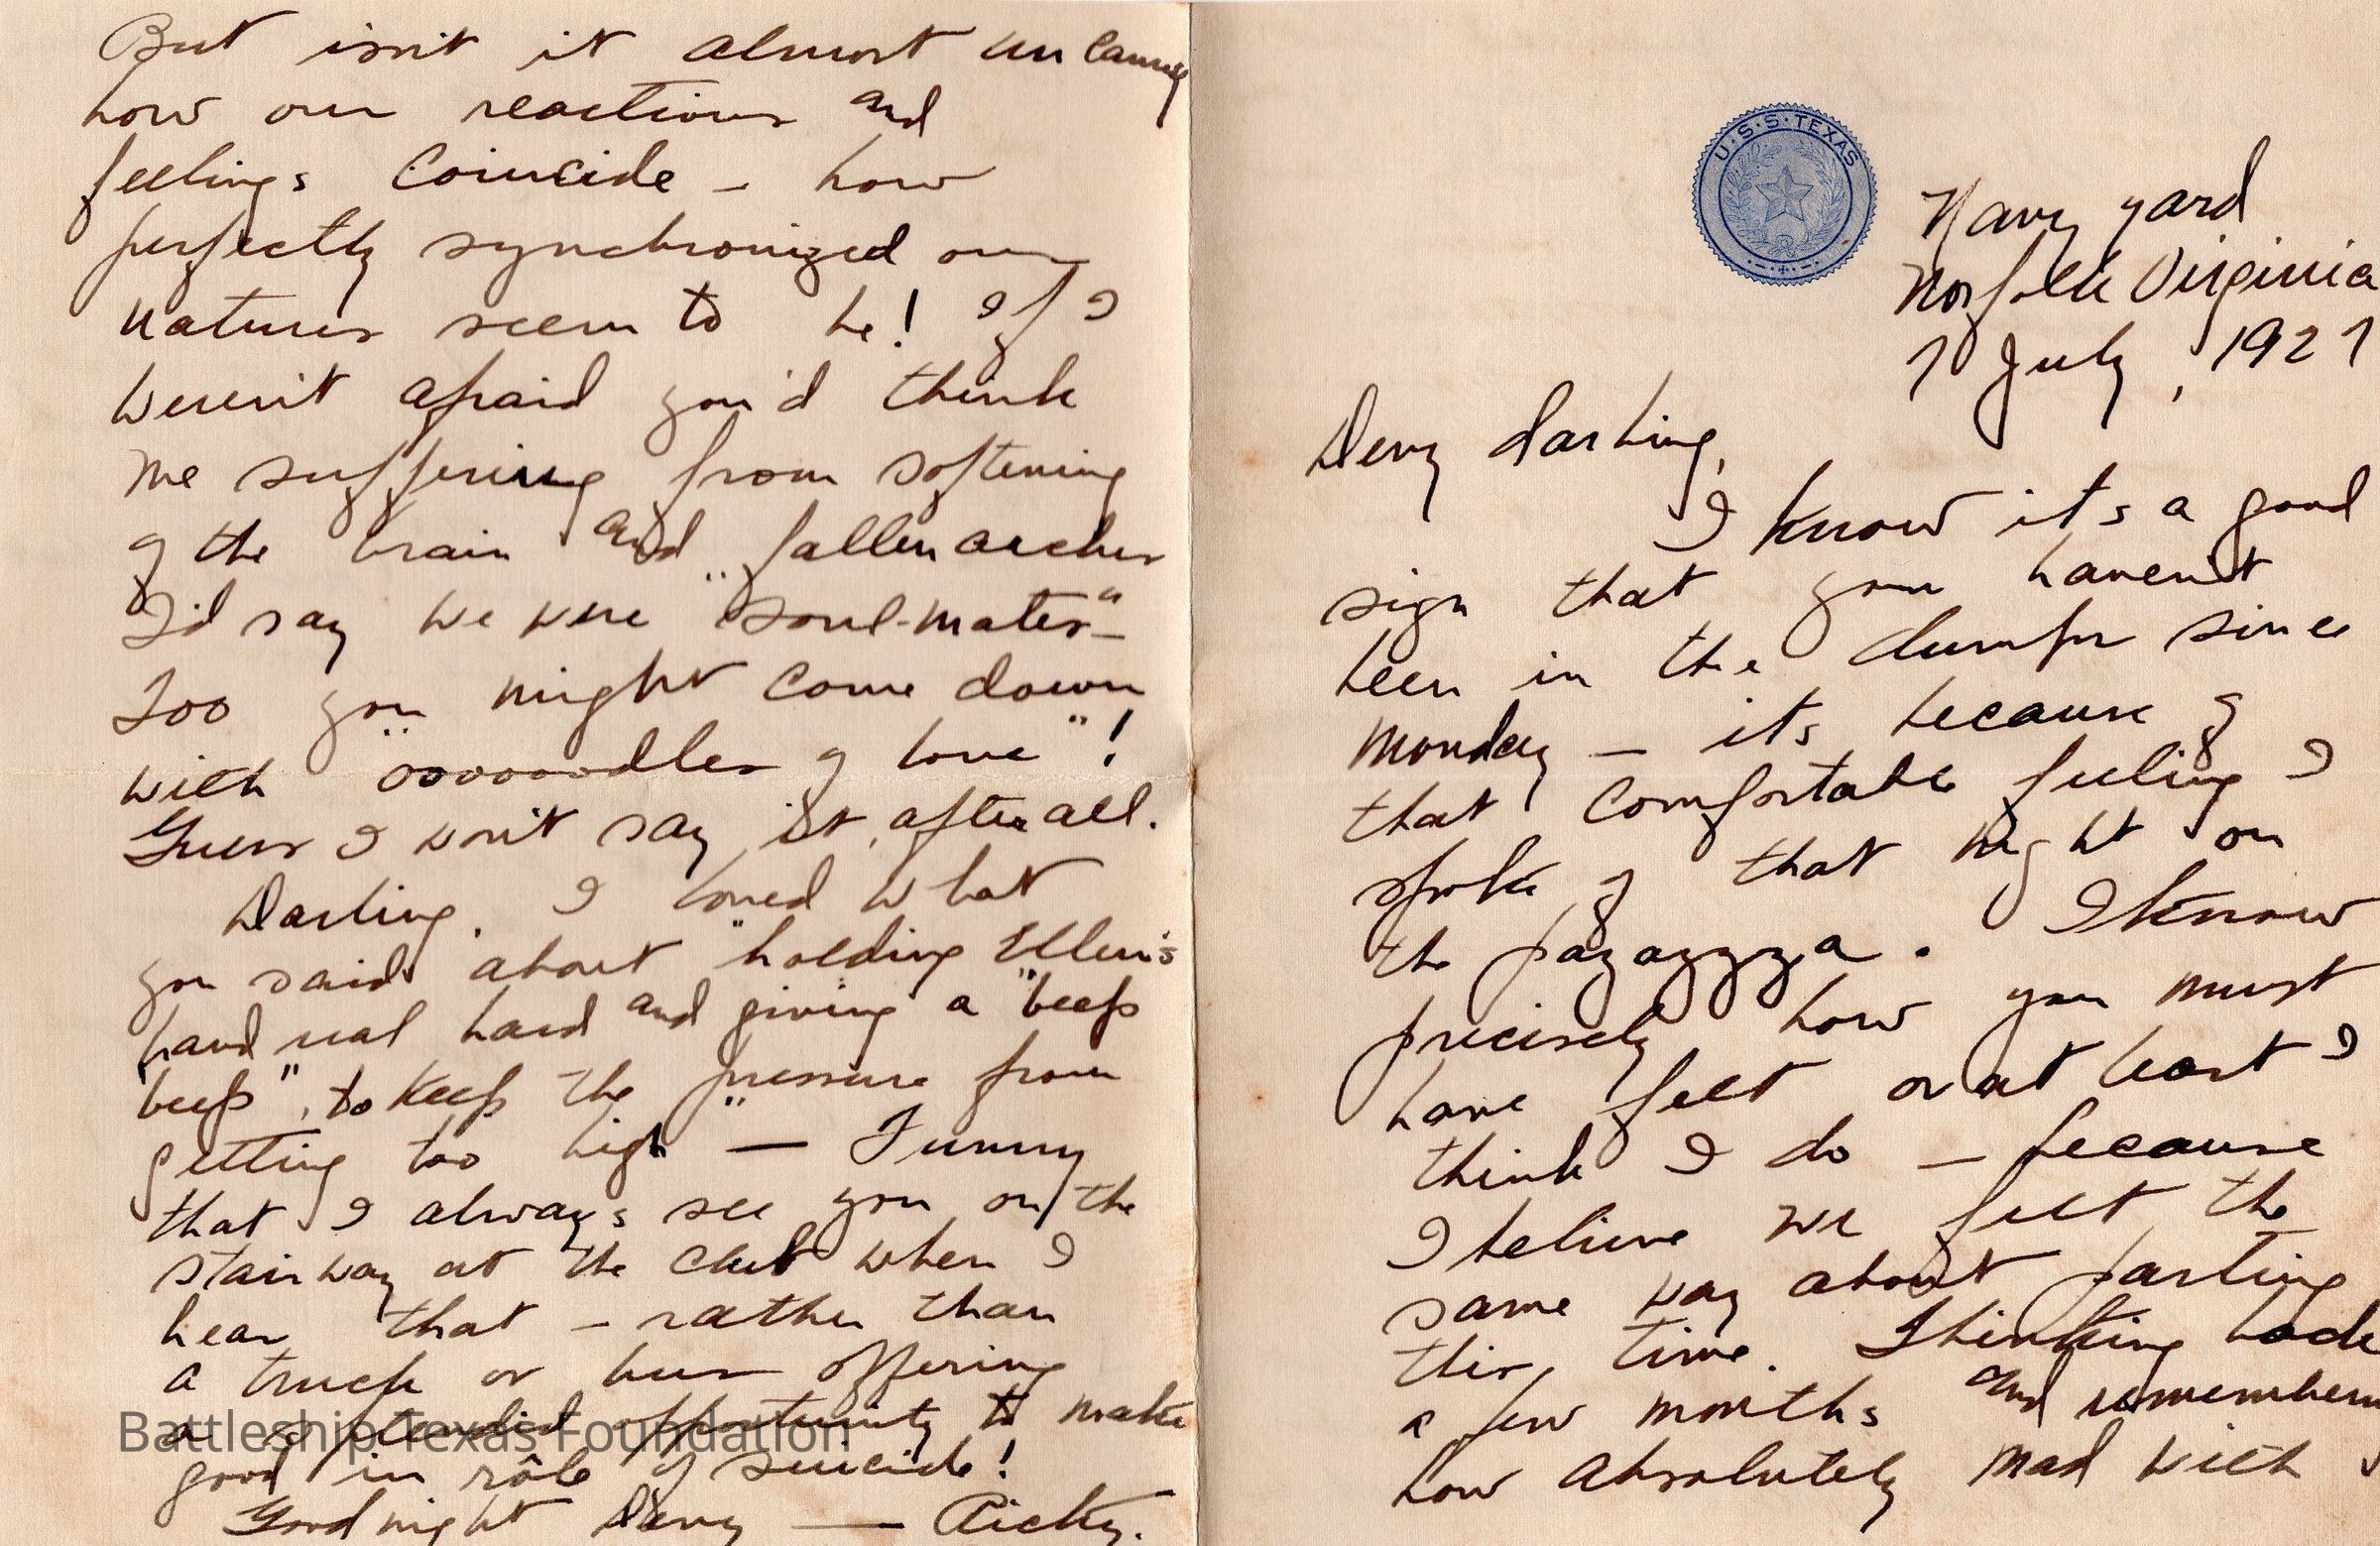 But isn't it almost uncanny
how our reactions and
feelings coincide – how
perfectly synchronized our
natures seem to be! If I
weren't afraid you'd think
me suffering from softening
of the brain and "fallen arches"
I'd say we were "soul-mates" –
Too you might come down
with "ooooooodles of love"!
Guess I won't say it, after all.
Darling, I loved what
you said about "holding Ellen's
hand real hard and giving a "beep
beep", to keep the pressure from
getting too high" — Funny
that I always see you on the
stairway at the club when I
hear that – rather than
a truck or bus offering
a splendid opportunity to make
good in rôle of suicide!
Good night Devy — Ricky.
Battleship Texas Foundation
U·S·S·TEXAS
Navy yard
Norfolk Virginia
7 July, 1927
Devy darling,
I know it's a good
sign that you haven't
been in the dumps since
Monday – its because of
that comfortable feeling I
spoke of that night on
the pazazzza. I know
precisely how you must
have felt or at least I
think I do – because
I believe we felt the
same way about parting
this time. Thinking back
a few months and
how absolutely mad with